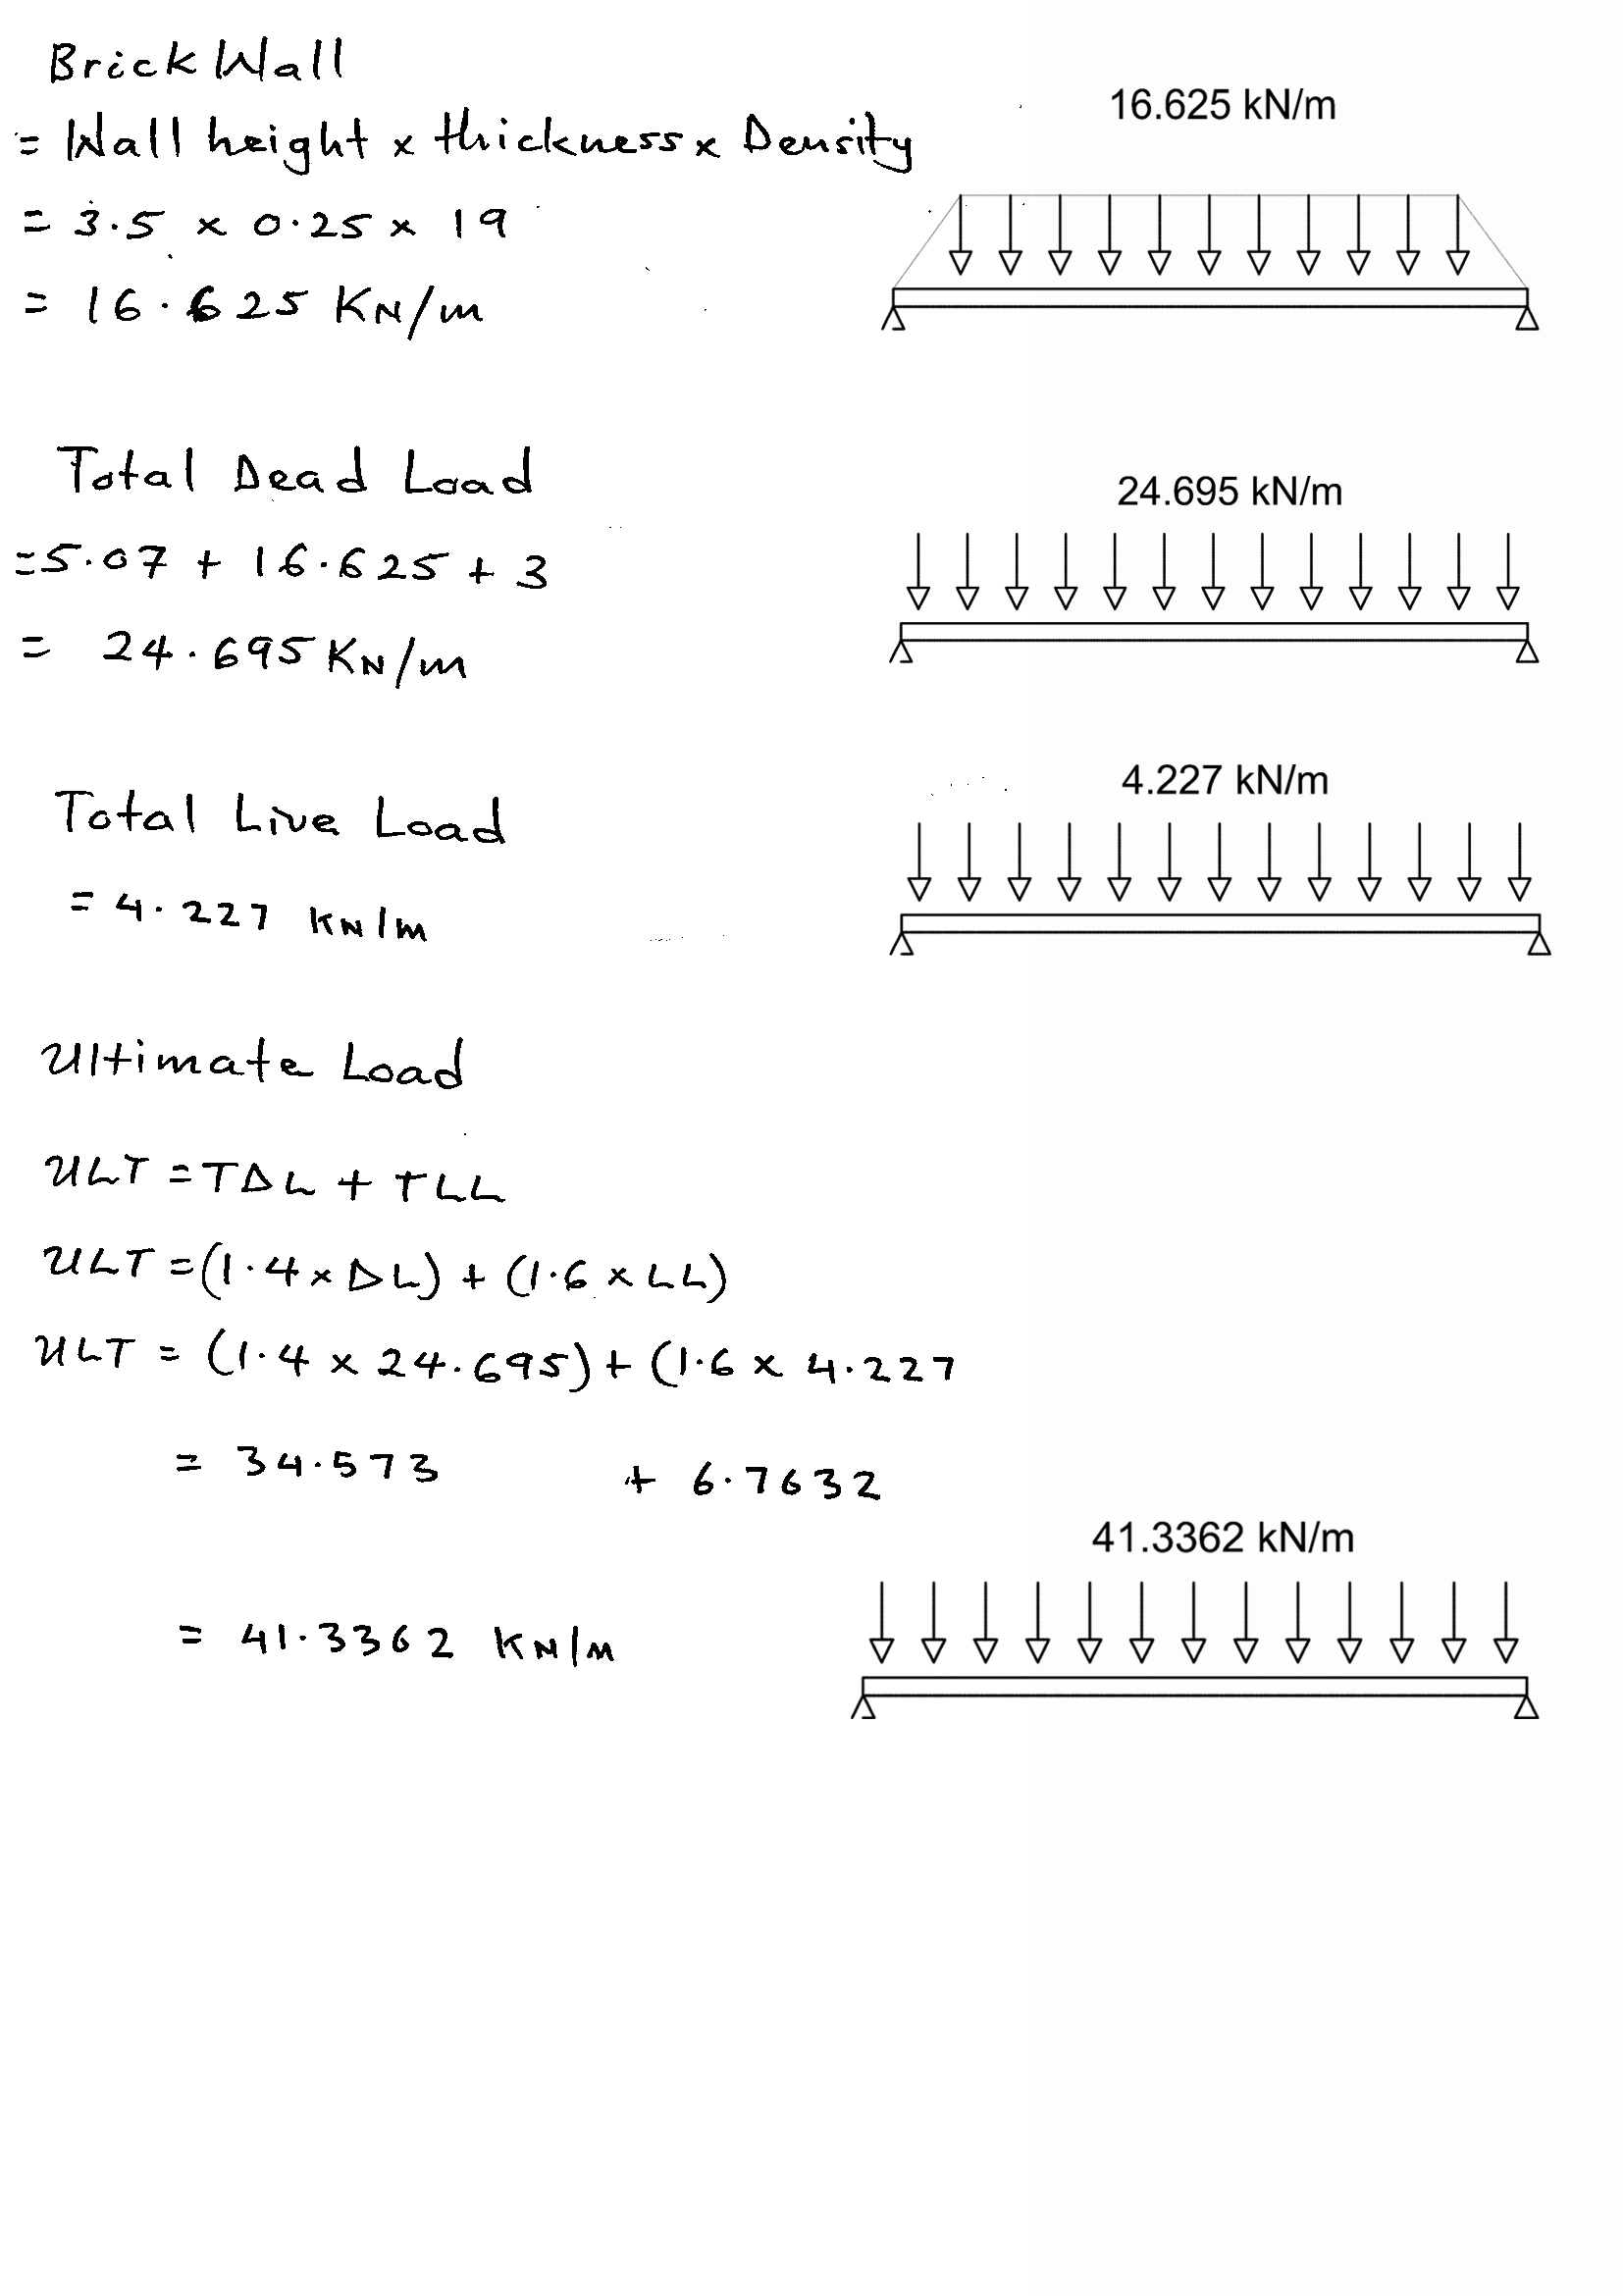 Brick Wall
= Wall height x thickness x Density
16.625 kN/m
= 3.5 x 0.25 x 19
= 16.625 KN/m
Total Dead Load
24.695 kN/m
=5.07 + 16.625 + 3
= 24.695 KN/m
4.227 kN/m
Total Live Load
= 4.227 KN/m
Ultimate Load
ULT = TDL + TLL
ULT = (1.4 x DL) + (1.6 x LL)
ULT = (1.4 x 24.695) + (1.6 x 4.227
= 34.573 + 6.7632
41.3362 kN/m
= 41.3362 KN/m